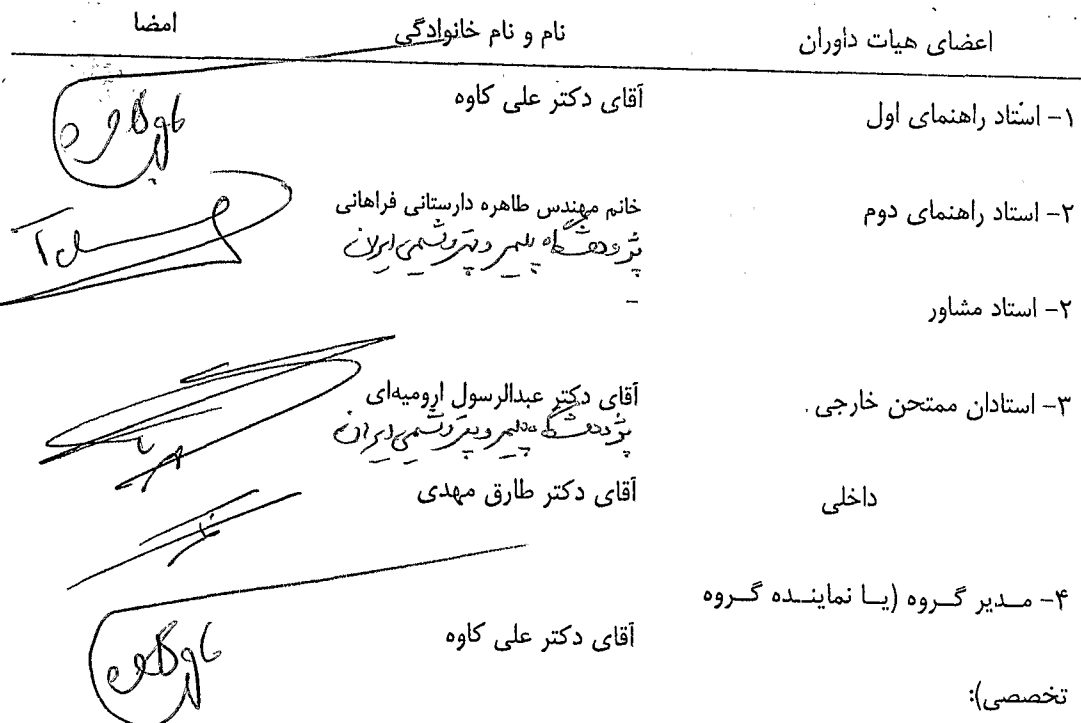 اعضای هیات داوران نام و نام خانوادگی امضا
۱- استاد راهنمای اول آقای دکتر علی کاوه
۲- استاد راهنمای دوم خانم مهندس طاهره دارستانی فراهانی
پژوهشگاه پلیمر و پتروشیمی ایران
۲- استاد مشاور -
۳- استادان ممتحن خارجی . آقای دکتر عبدالرسول ارومیه‌ای
پژوهشگاه پلیمر و پتروشیمی ایران
داخلی آقای دکتر طارق مهدی
۴- مـدیر گـروه (یـا نماینـده گـروه
آقای دکتر علی کاوه
تخصصی):